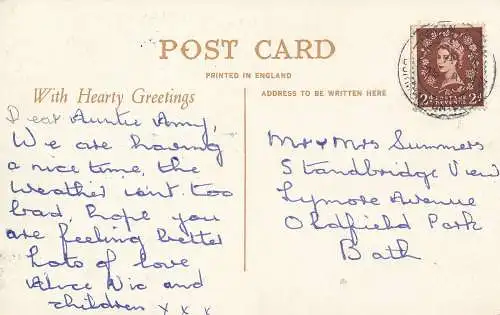 POST CARD
PRINTED IN ENGLAND
With Hearty Greetings
ADDRESS TO BE WRITTEN HERE
Dear Auntie Amy,
We are having
a nice time, the
weather isn't too
bad, hope you
are feeling better
Lots of love
Alice Vic and
children x x x
Mr & Mrs Summers
Standbridge View
Lymore Avenue
Oldfield Park
Bath
2D
2D